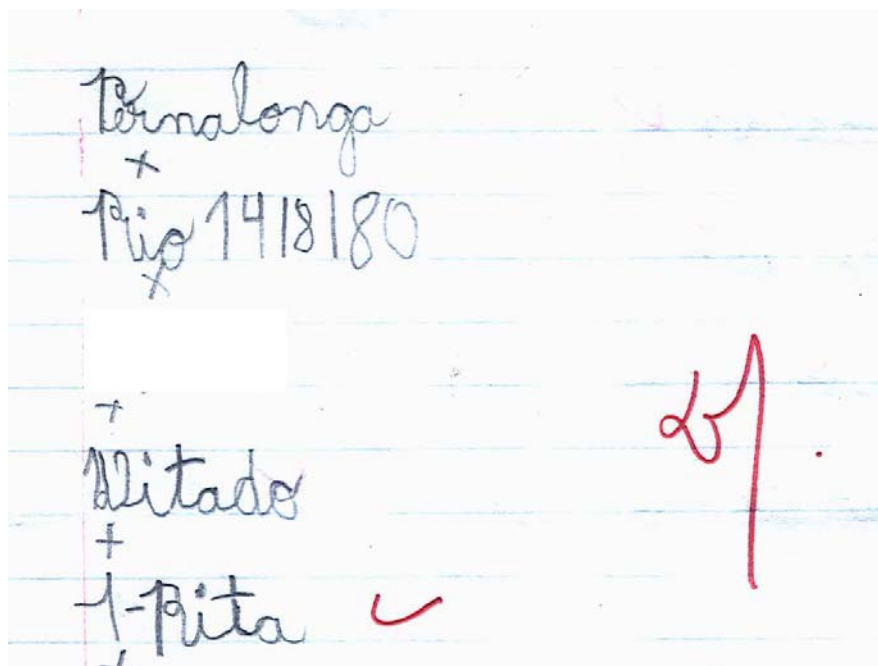 Pernalonga
+
Rio 14/8/80
+
+
Ditado
+
1-Rita